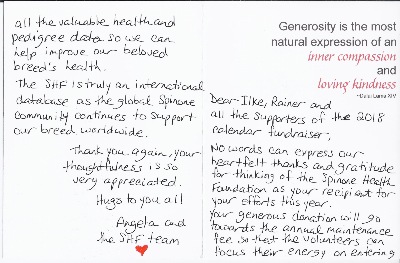 Generosity is the most
natural expression of an
inner compassion
and
loving kindness
~Dalai Lama XIV
Dear Ilke, Rainer and
all the supporters of the 2018
calendar fundraiser,
No words can express our
heartfelt thanks and gratitude
for thinking of the Spinone Health
Foundation as your recipient for
your efforts this year.
Your generous donation will go
towards the annual maintenance
fee so that the volunteers can
focus their energy on entering
all the valuable health and
pedigree data so we can
help improve our beloved
breed's health.
The SHF is truly an international
database as the global Spinone
community continues to support
our breed worldwide.
Thank you again, your
thoughtfulness is so
very appreciated.
Hugs to you all
Angela and
the SHF team